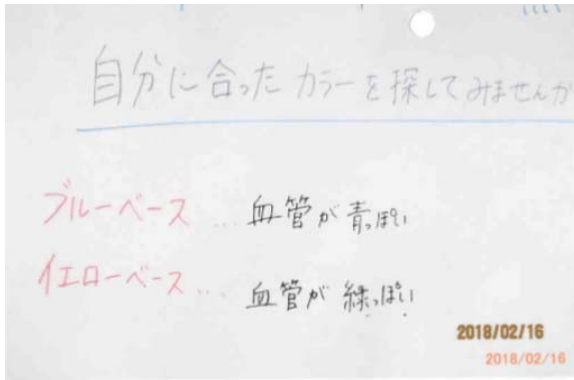 自分に合ったカラーを探してみませんか
ブルーベース … 血管が青っぽい
イエローベース … 血管が緑っぽい
2018/02/16
2018/02/16